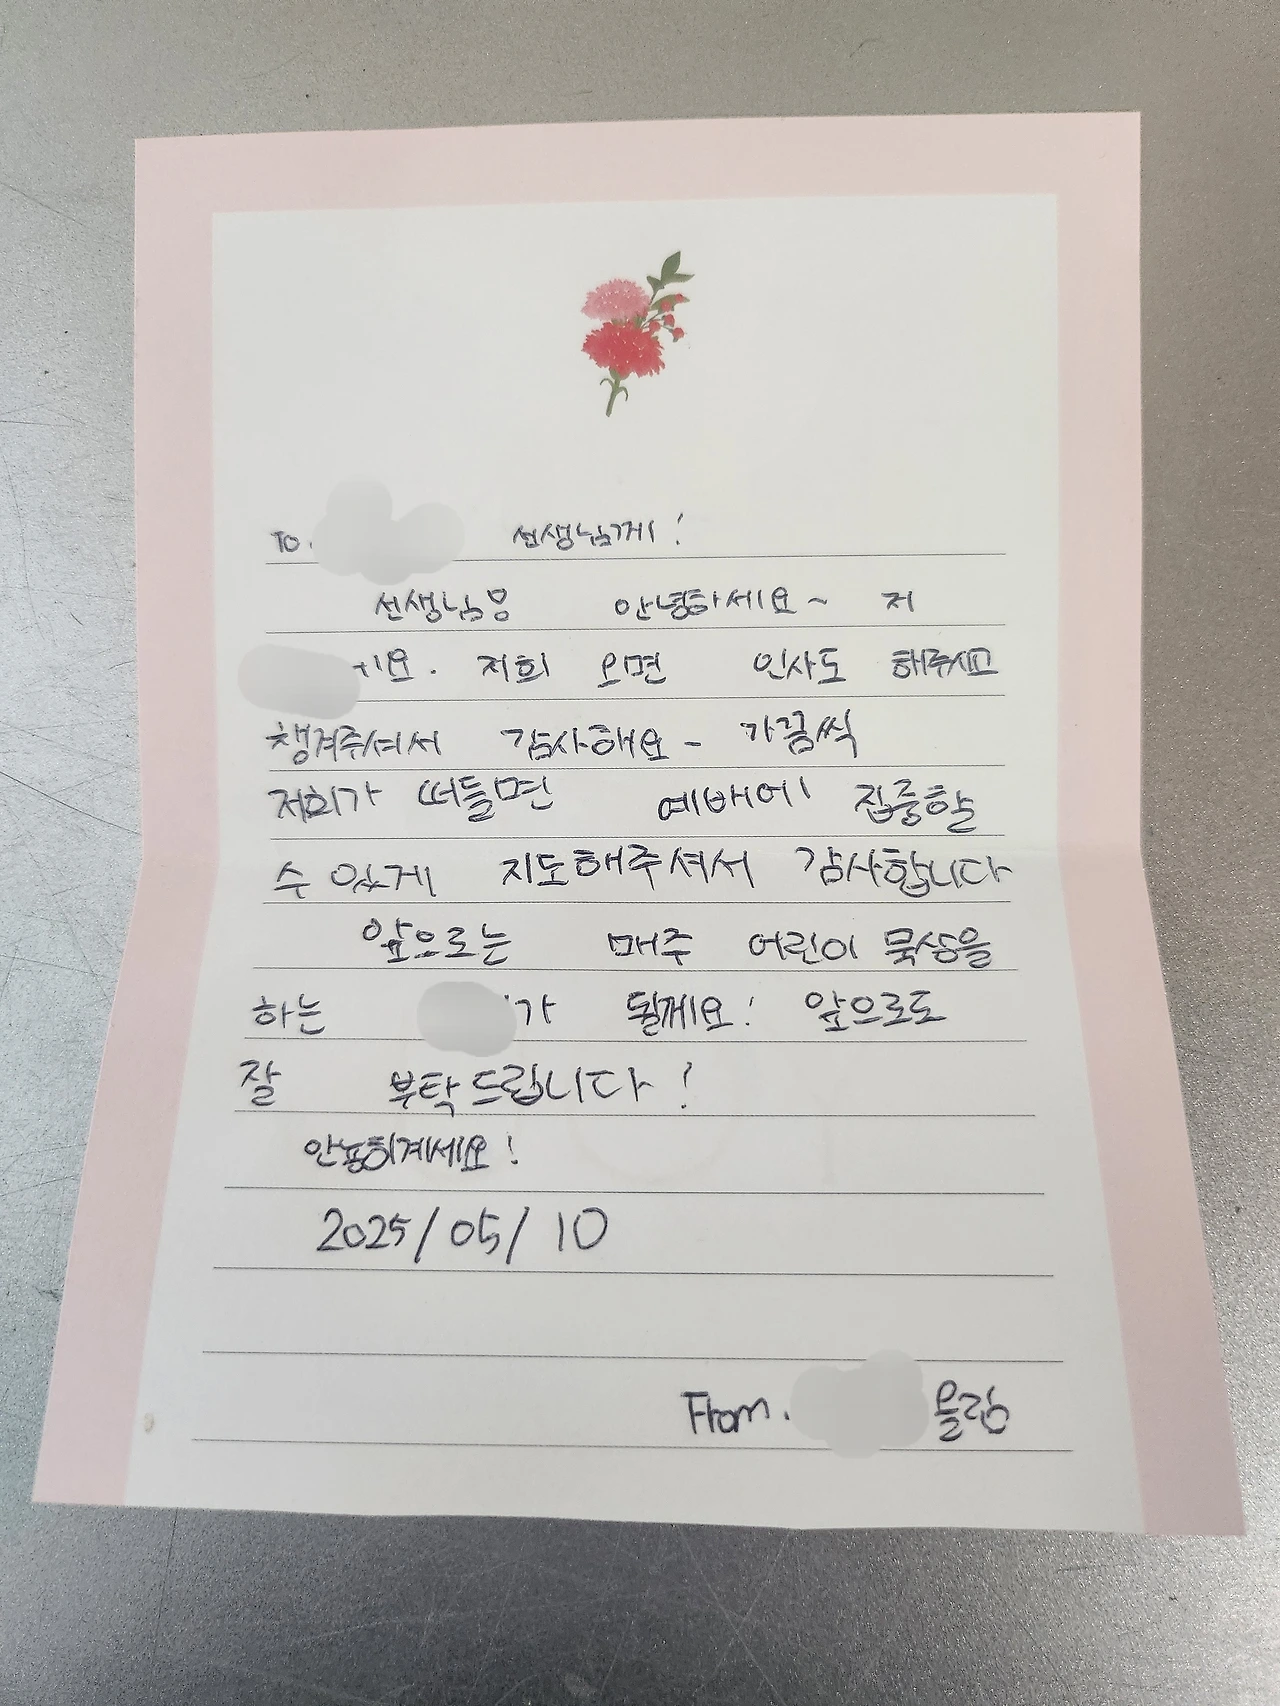 To. 선생님께!
선생님용 안녕하세요~ 저
요. 저희 오면 인사도 해주시고
챙겨주셔서 감사해요~ 가끔씩
저희가 떠들면 예배에 집중할
수 있게 지도해주셔서 감사합니다
앞으로는 매주 어린이 묵상을
하는 가 될게요! 앞으로도
잘 부탁드립니다!
안뇽히계세요!
2025/05/10
From. 올림